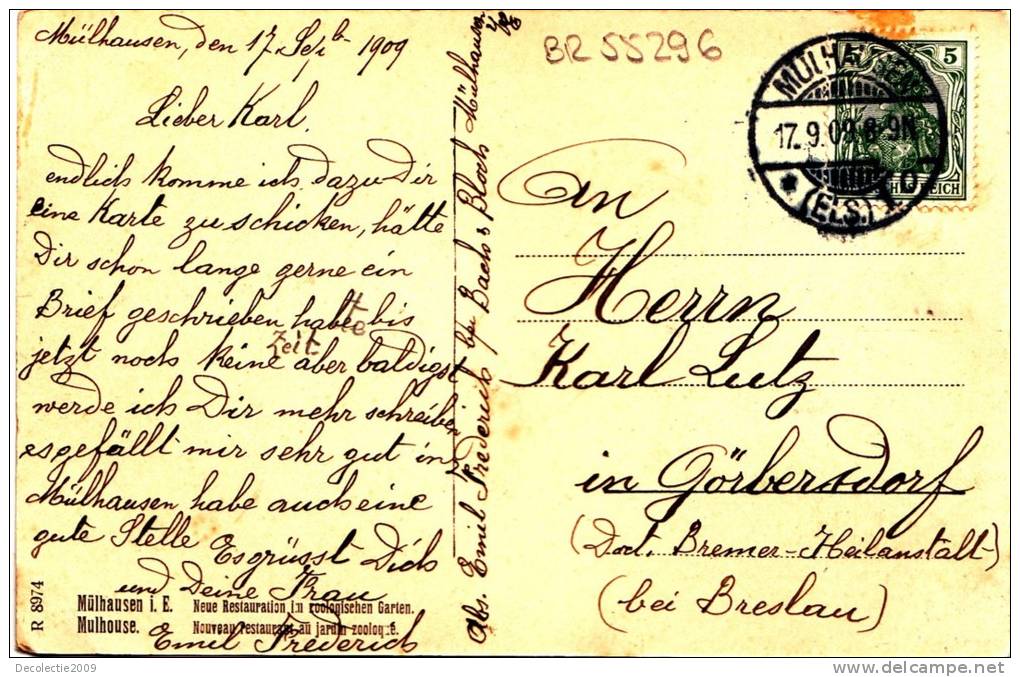 Mülhausen, den 17. Sept. 1909
Lieber Karl.
endlich komme ich dazu Dir
eine Karte zu schicken, hätte
Dir schon lange gerne ein
Brief geschrieben habte bis
jetzt noch keine Zeit aber baldigst
werde ich Dir mehr schreiben
es gefällt mir sehr gut in
Mülhausen habe auch eine
gute Stelle Es grüsst Dich
und Deine Frau
Emil Frederich
R 8974
Mülhausen i. E. Neue Restauration im zoologischen Garten.
Mulhouse. Nouveau restaurant au jardin zoologique.
Abs. Emil Frederich bei Bachs Bloch Mülhausen
BR 55296
MÜLHAUSEN
17. 9. 09. 8-9N
(ELS.) 1
5 5
REICH
An
Herrn
Karl Lutz
in Görbersdorf
(Dort. Bremer-Heilanstalt)
(bei Breslau)
Decolectie2009
delcampe.net